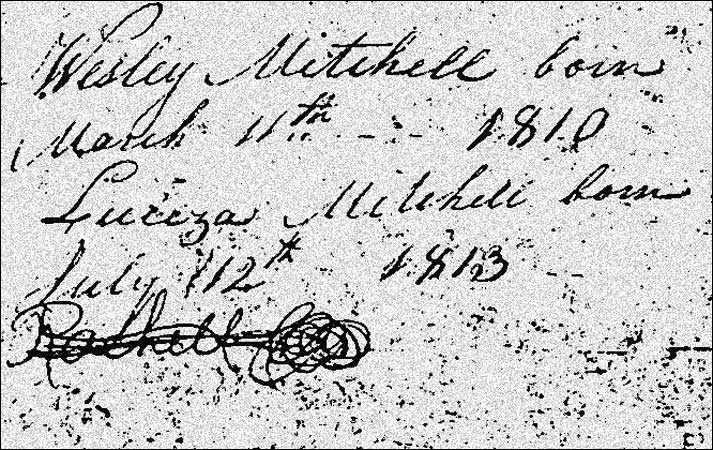 Wesley Mitchell born
March 11th - - - 1810
Luceza Mitchell born
July 12th 1813
Rachell